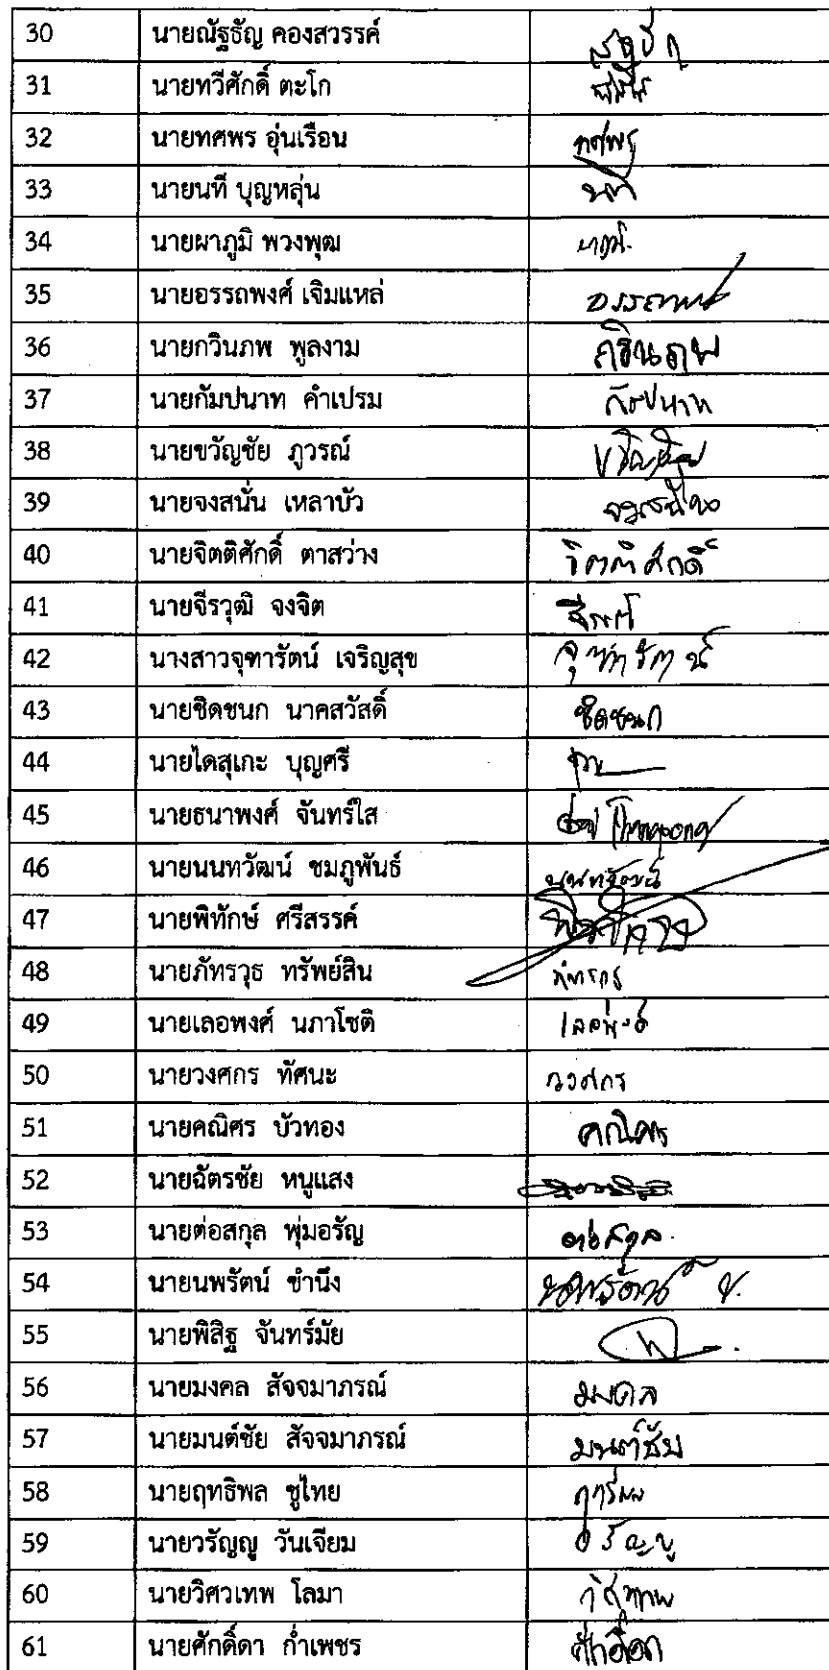 30 นายณัฐธัญ คองสวรรค์
31 นายทวีศักดิ์ ตะโก
32 นายทศพร อุ่นเรือน ทศพร
33 นายนที บุญหลุ่น นที
34 นายผาภูมิ พวงพุฒ ผาภูมิ
35 นายอรรถพงศ์ เจิมแหล่ อรรถพงศ์
36 นายกวินภพ พูลงาม กวินภพ
37 นายกัมปนาท คำเปรม กัมปนาท
38 นายขวัญชัย ภูวรณ์ ขวัญชัย
39 นายจงสนั่น เหลาบัว จงสนั่น
40 นายจิตติศักดิ์ ตาสว่าง จิตติศักดิ์
41 นายจีรวุฒิ จงจิต
42 นางสาวจุฑารัตน์ เจริญสุข จุฑารัตน์
43 นายชิดชนก นาคสวัสดิ์ ชิดชนก
44 นายไดสุเกะ บุญศรี
45 นายธนาพงศ์ จันทร์ใส
46 นายนนทวัฒน์ ชมภูพันธ์ นนทวัฒน์
47 นายพิทักษ์ ศรีสรรค์
48 นายภัทรวุธ ทรัพย์สิน
49 นายเลอพงศ์ นภาโชติ เลอพงศ์
50 นายวงศกร ทัศนะ วงศกร
51 นายคณิศร บัวทอง คณิศร
52 นายฉัตรชัย หนูแสง
53 นายต่อสกุล พุ่มอรัญ ต่อสกุล
54 นายนพรัตน์ ขำนึง นพรัตน์ ข.
55 นายพิสิฐ จันทร์มัย
56 นายมงคล สัจจมาภรณ์ มงคล
57 นายมนต์ชัย สัจจมาภรณ์ มนต์ชัย
58 นายฤทธิพล ชูไทย
59 นายวรัญญู วันเจียม วรัญญู
60 นายวิศวเทพ โลมา
61 นายศักดิ์ดา ก่ำเพชร